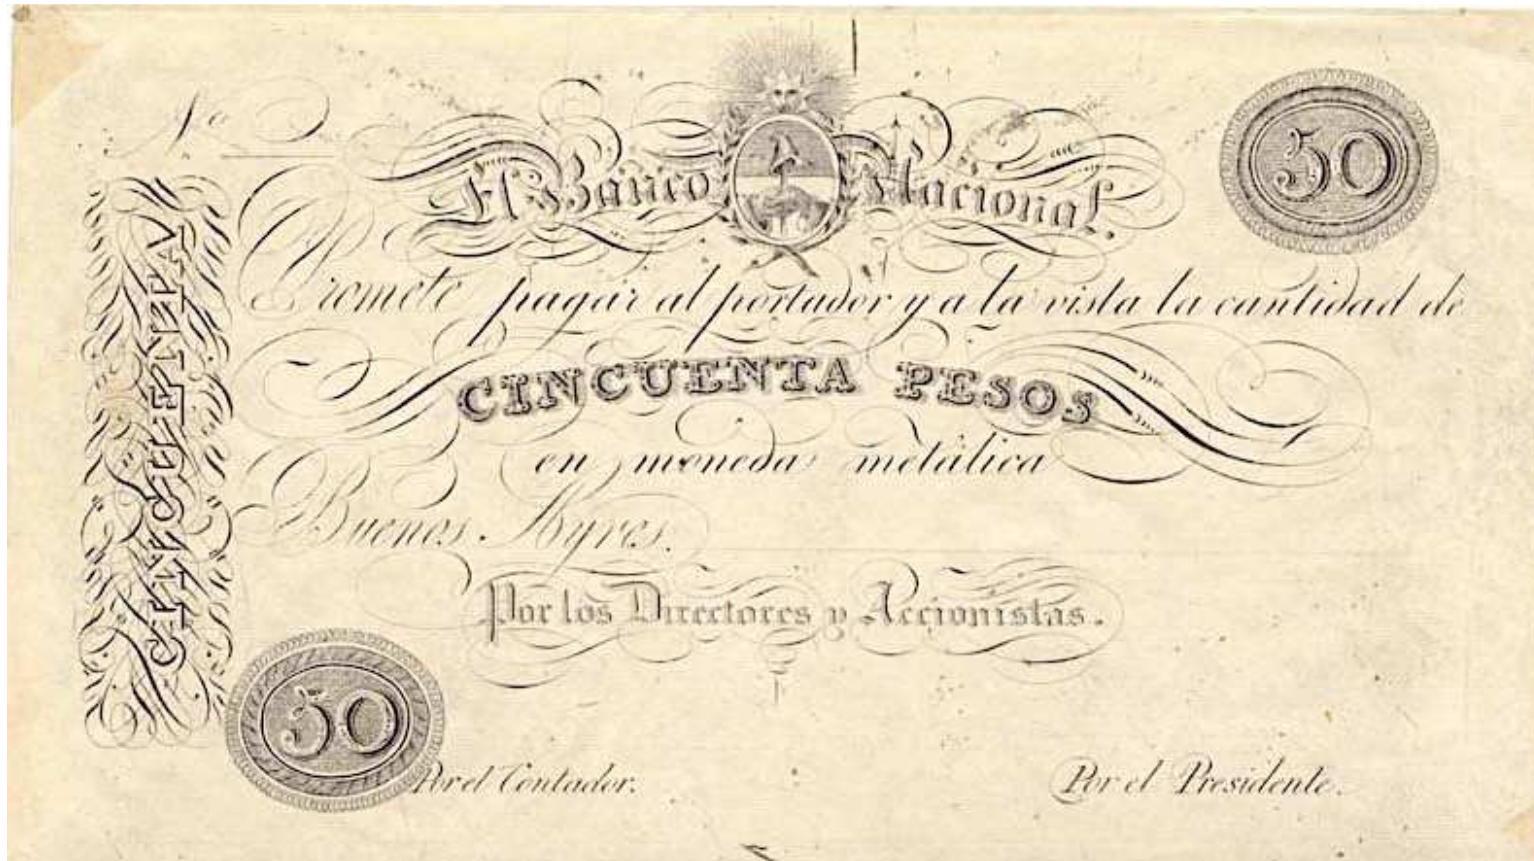 Nº
50
El Banco Nacional.
Promete pagar al portador y a la vista la cantidad de
CINCUENTA PESOS
en moneda metálica
Buenos Ayres.
Por los Directores y Accionistas.
CINCUENTA
50
Por el Contador.
Por el Presidente.